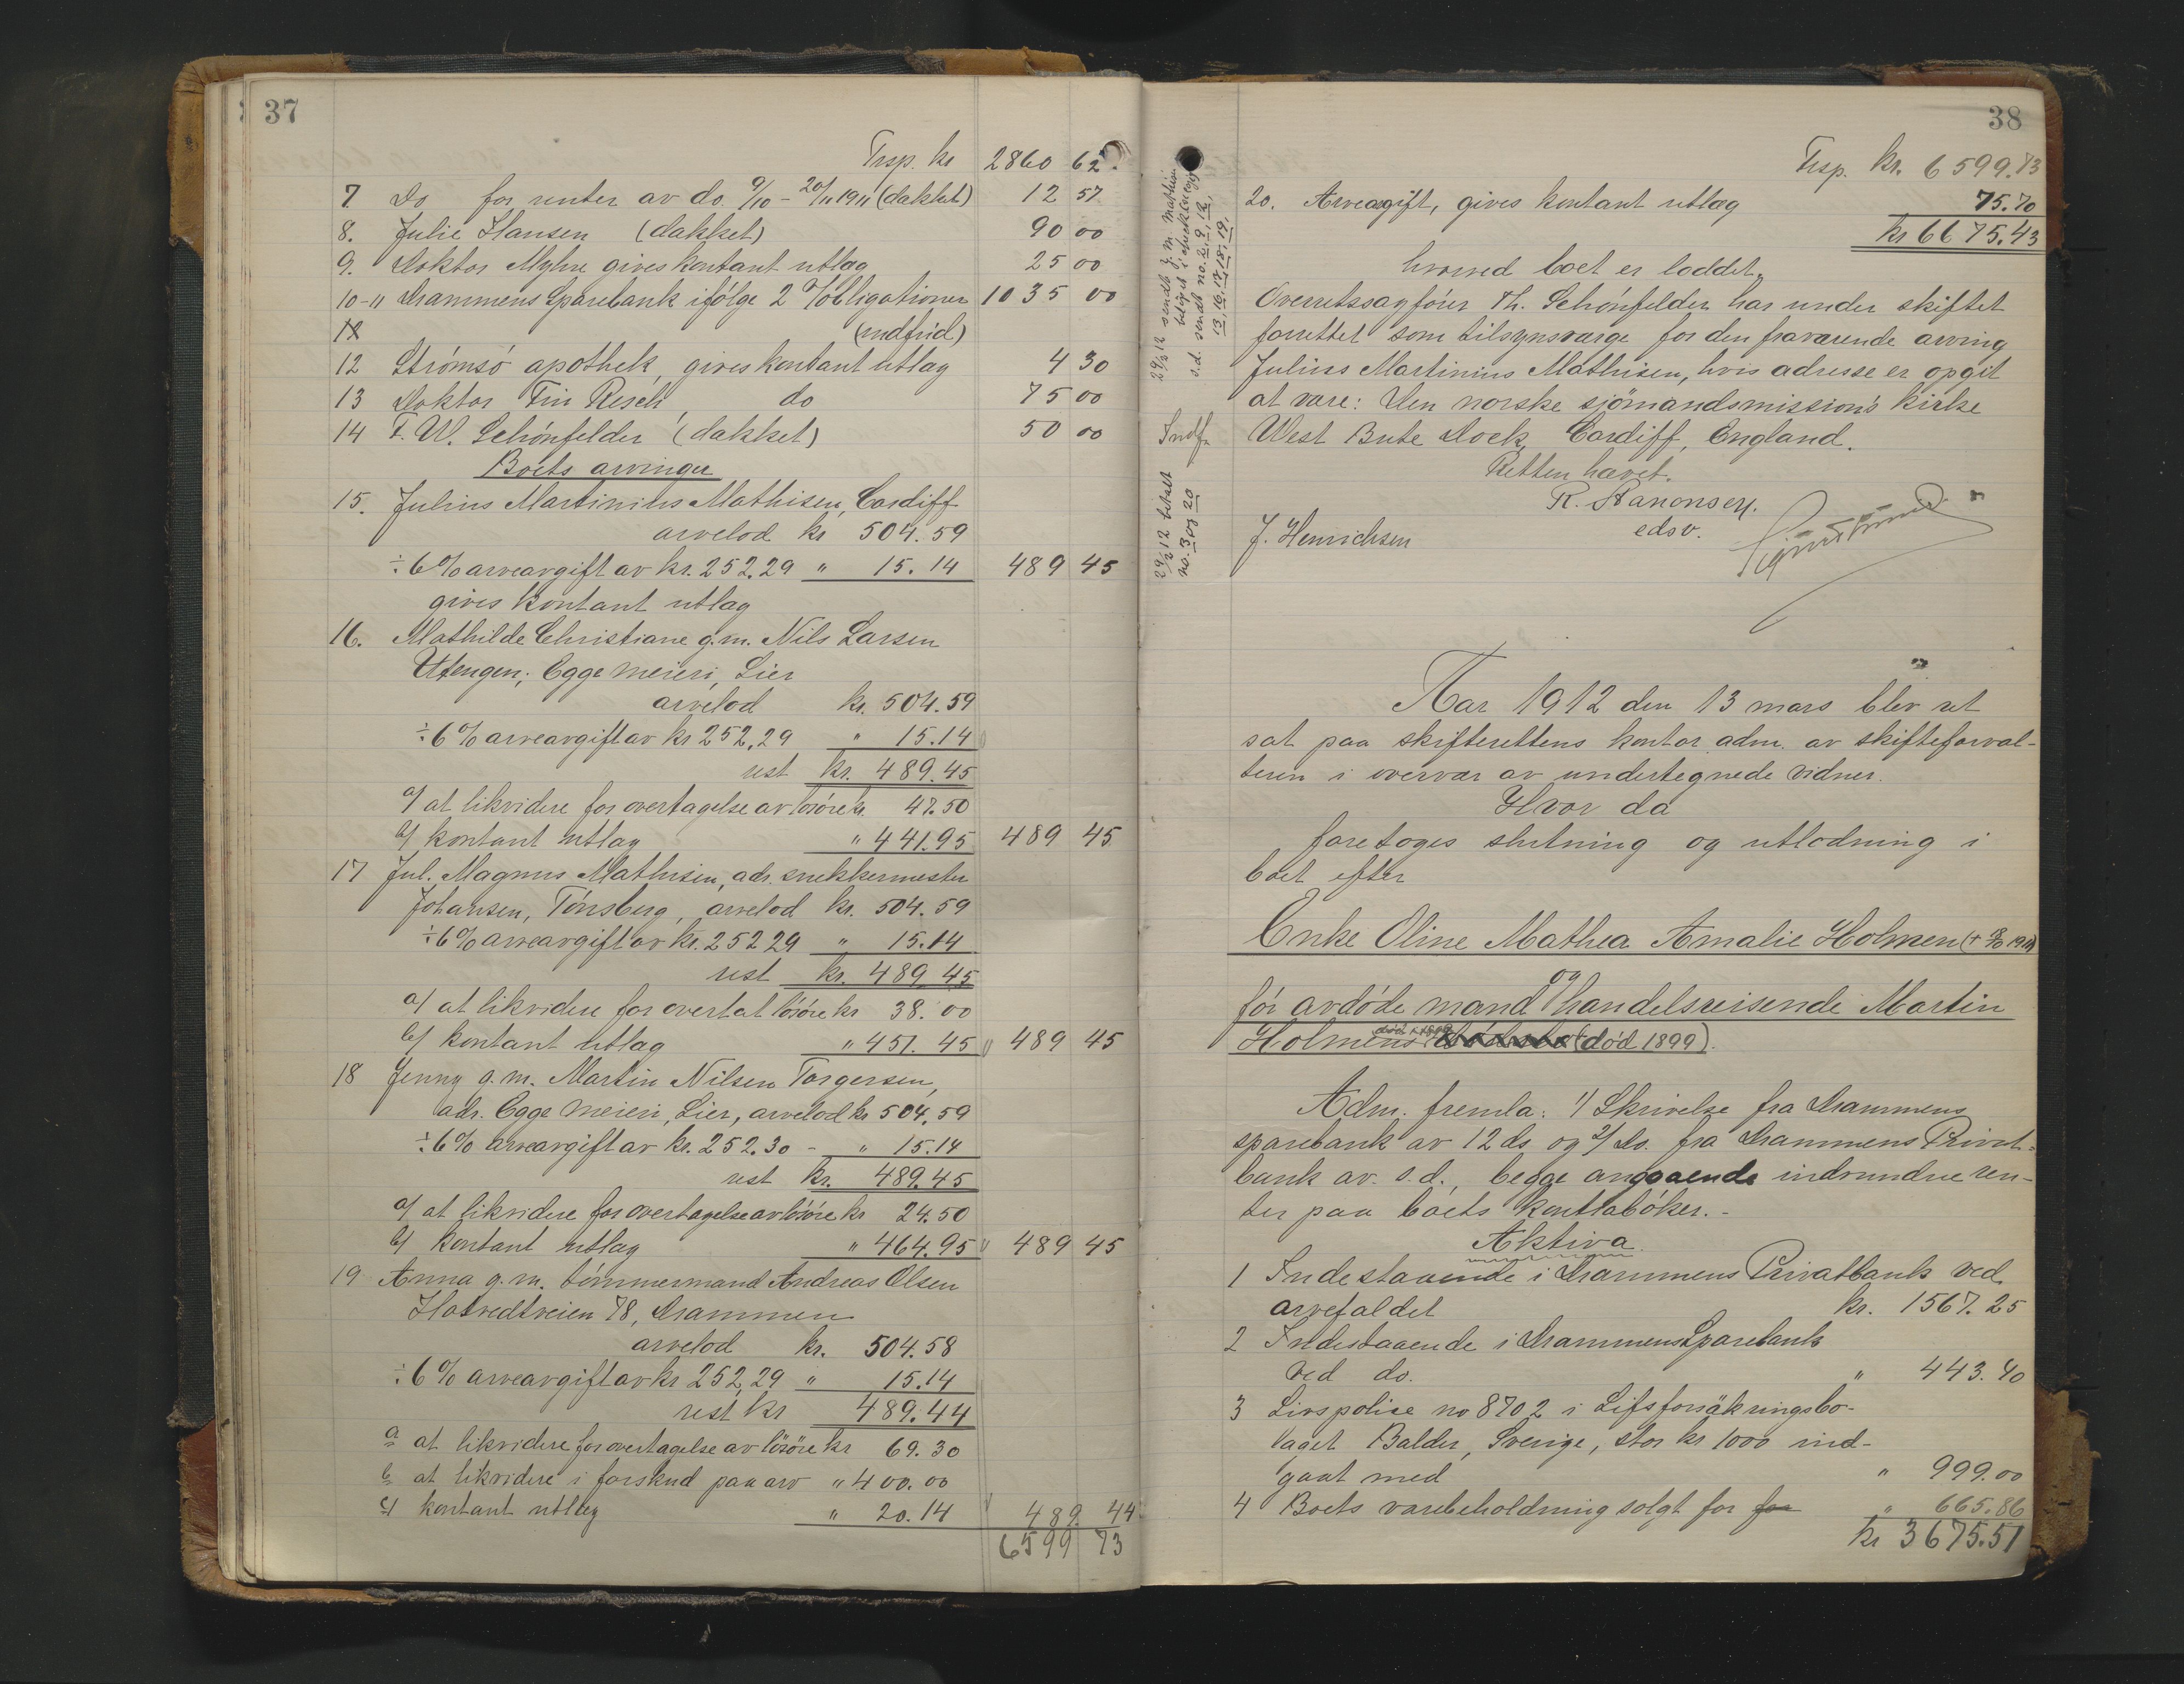 37
Trsp. kr 2860 62
7 Do for renter av do. 9/10 - 20/11 1911 (dækket) 12 57
8. Julie Hansen (dækket) 90 00
9. Doktor Myhre gives kontant utlæg 25 00
10-11 Drammens Sparebank ifölge 2 obligationer 1035 00
(indfrid)
12 Strömsö apothek, gives kontant utlæg 4 30
13 Doktor Tin Resch, do 75 00
14 F. W. Schönfelder (dækket) 50 00
Boets arvinger
15. Julius Martinius Mathisen, Cardiff
arvelod kr 504.59
÷ 6% arveavgift av kr. 252.29 " 15.14 489 45
gives kontant utlæg
16. Mathilde Christiane g.m. Nils Larsen
Utengen, Egge meieri, Lier
arvelod kr. 504.59
÷ 6% arveavgift av kr 252,29 " 15.14
rest kr. 489.45
a/ at likvidere for overtagelse av lösöre kr. 47.50
b/ kontant utlæg " 441.95 489 45
17 Jul. Magnus Mathisen, adr. snekkermester
Johansen, Tönsberg, arvelod kr. 504.59
÷ 6% arveavgift av kr. 252 29 " 15.14
rest kr. 489.45
a/ at likvidere for overtat lösöre kr 38.00
b/ kontant utlæg " 451.45 489 45
18 Jenny g.m. Martin Nilsen Torgersen,
adr. Egge meieri, Lier, arvelod kr 504,59
÷ 6% arveavgift av kr. 252.30 - " 15.14
rest kr. 489.45
a/ at likvidere for overtagelse av lösöre kr 24.50
b/ kontant utlæg " 464.95 489 45
19 Anna g.m. tömmermand Andreas Olsen
Hotvedtveien 78, Drammen
arvelod kr. 504.58
÷ 6% arveavgift av kr 252,29 " 15.14
rest kr 489.44
a at likvidere for overtagelse av lösöre kr 69.30
b at likvidere i forskud paa arv " 400.00
c/ kontant utlæg " 20.14 489. 44
6599 73
38
Trsp. kr. 6599.73
20. Arveavgift, gives kontant utlæg 75.70
kr 6675.43
hvorved boet er loddet.
Overretssagförer Th. Schönfelder har under skiftet
forrettet som tilsynsværge for den fraværende arving
Julius Martinius Mathisen, hvis adresse er opgit
at være: Den norske sjömandsmission's kirke
West Bute Dock, Cardiff, England.
Retten hævet.
R. Aanonsen.
edsv.
J. Henrichsen
29/2 12 sendt J. M. Mathisen
s.d. sendt no. 2, 9, 12,
13, 16, 17, 18, 19,
Indf.
29/2 12 betalt
no. 3 og 20
Aar 1912 den 13 mars blev ret
sat paa skifterettens kontor adm. av skifteforval-
teren i overvær av undertegnede vidner.
Hvor da
foretoges slutning og utlodning i
boet efter
Enke Oline Mathea Amalie Holmen
og
för avdöde mand handelsreisende Martin
Holmens (död 1899).
Adm. fremla: 1) Skrivelse fra Drammens
sparebank av 12 ds og 2/ Do. fra Drammens Privat-
bank av s.d., begge angaaende indvundne ren-
ter paa boets kontrabøker. -
Aktiva.
1 Indestaaende i Drammens Privatbank ved
arvefaldet kr. 1567.25
2 Indestaaende i Drammens Sparebank
ved do. " 443.40
3 Livspolise no 8702 i Lifsförsäkringsbo-
laget Balder, Sverige, stor kr 1000 ind-
gaat med " 999.00
4 Boets varebeholdning solgt for for " 665.86
kr 3675.51